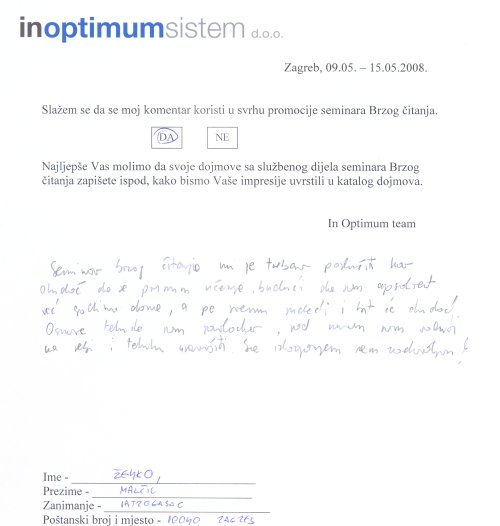 inoptimumsistem d.o.o.
Zagreb, 09.05. – 15.05.2008.
Slažem se da se moj komentar koristi u svrhu promocije seminara Brzog čitanja.
DA NE
Najljepše Vas molimo da svoje dojmove sa službenog dijela seminara Brzog
čitanja zapišete ispod, kako bismo Vaše impresije uvrstili u katalog dojmova.
In Optimum team
Seminar brzog čitanja mi je trebao poslužiti kao
da se primim učenja, budući da sam apsolvent
već godinu dana, a po svemu sudeći i bit će
Osnove tehnike sam savladao, sad moram sam raditi
na sebi i tehniku usavršiti. Sa zadovoljan!
Ime - ŽELJKO,
Prezime -
Zanimanje -
Poštanski broj i mjesto - 10040 ZAGREB